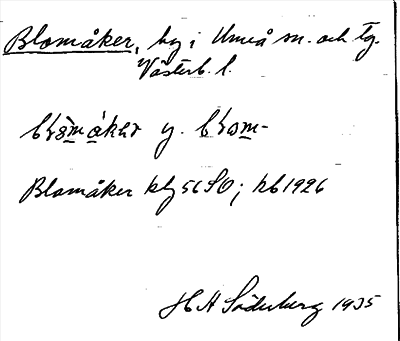 Blomåker, by i Umeå sn. och tg.
Västerb. l.
blomåker y. blom-
Blomåker kbg 56 SO; kb 1926
H H Söderberg 1935